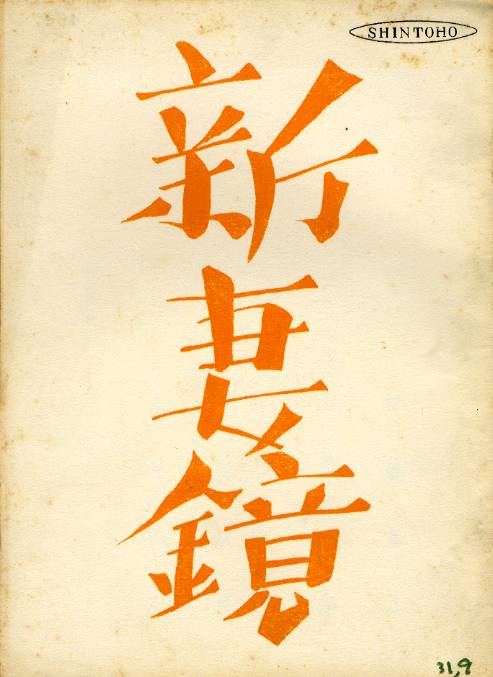 SHINTOHO
新妻鏡
31,9